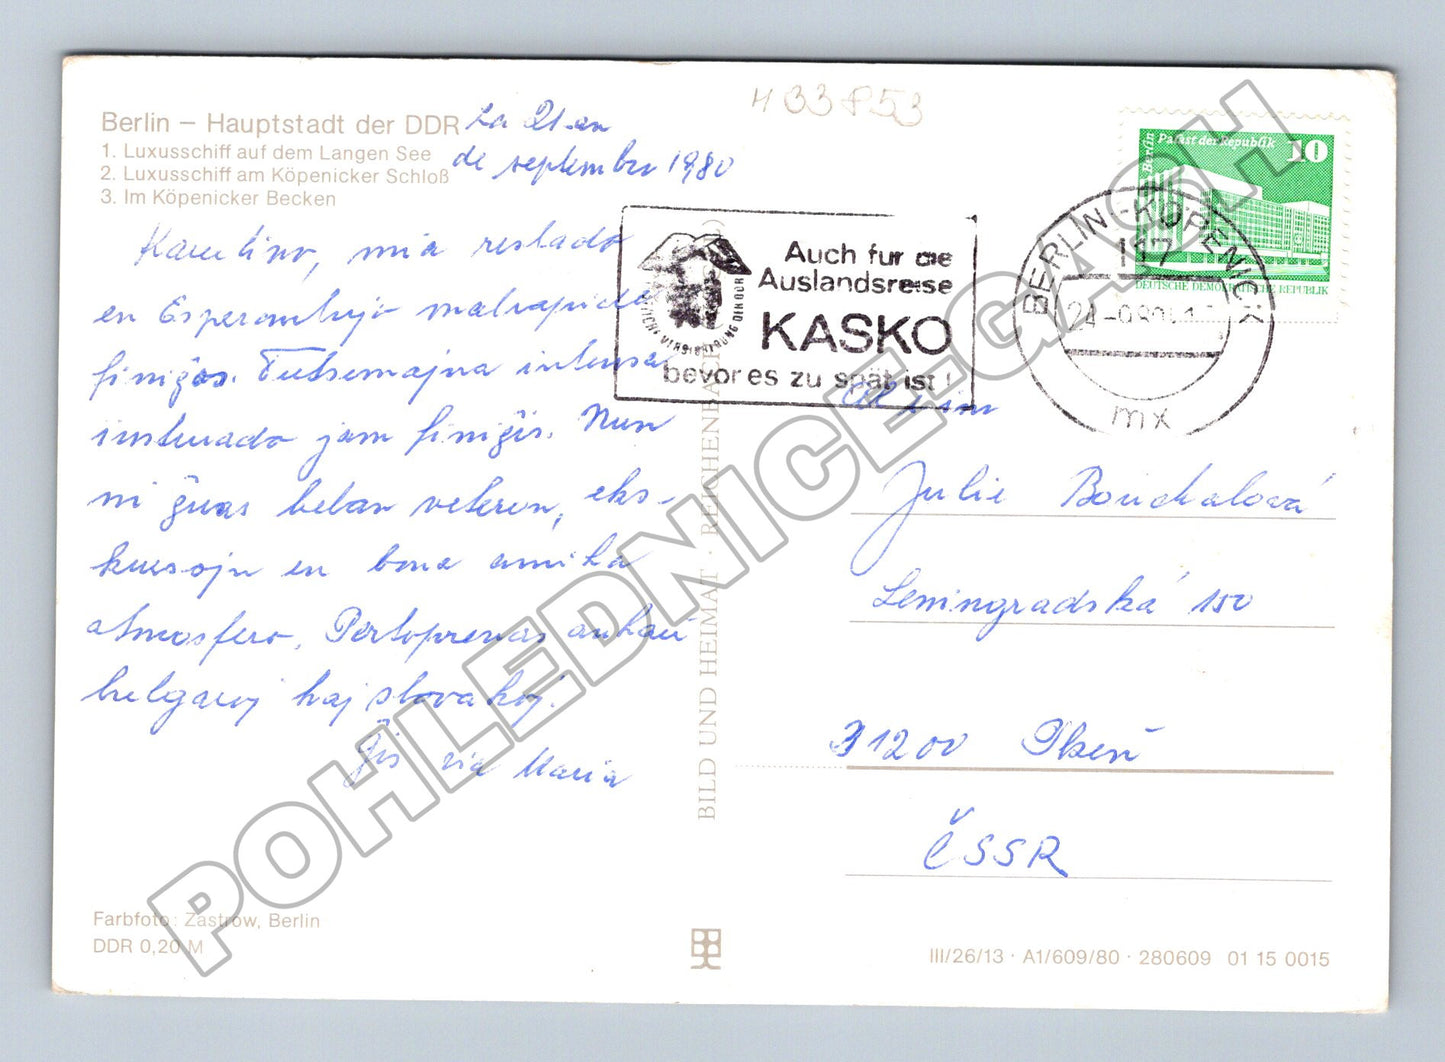 H 33853
Berlin – Hauptstadt der DDR
1. Luxusschiff auf dem Langen See
2. Luxusschiff am Köpenicker Schloß
3. Im Köpenicker Becken
La 21-an
de septembro 1980
Karulino, mia restado
en Esperantujo malrapide
finiĝas. Tutsemajna intensa
instruado jam finiĝis. Nun
ni ĝuas belan veteron, eks-
kursojn en bona amika
atmosfero.
bulgaroj kaj slovakoj.
Ĝis via Maria
Palast der Republik
Berlin
10
DEUTSCHE DEMOKRATISCHE REPUBLIK
Auch für die
Auslandsreise
KASKO
bevor es zu spät ist!
BERLIN-KÖPENICK
117
mx
Julie Bouchalová
Leningradská 150
31200 Plzeň
ČSSR
BILD UND HEIMAT · REICHENBACH
Farbfoto: Zastrow, Berlin
DDR 0,20 M
III/26/13 · A1/609/80 · 280609 01 15 0015
POHLEDNICE-GASH